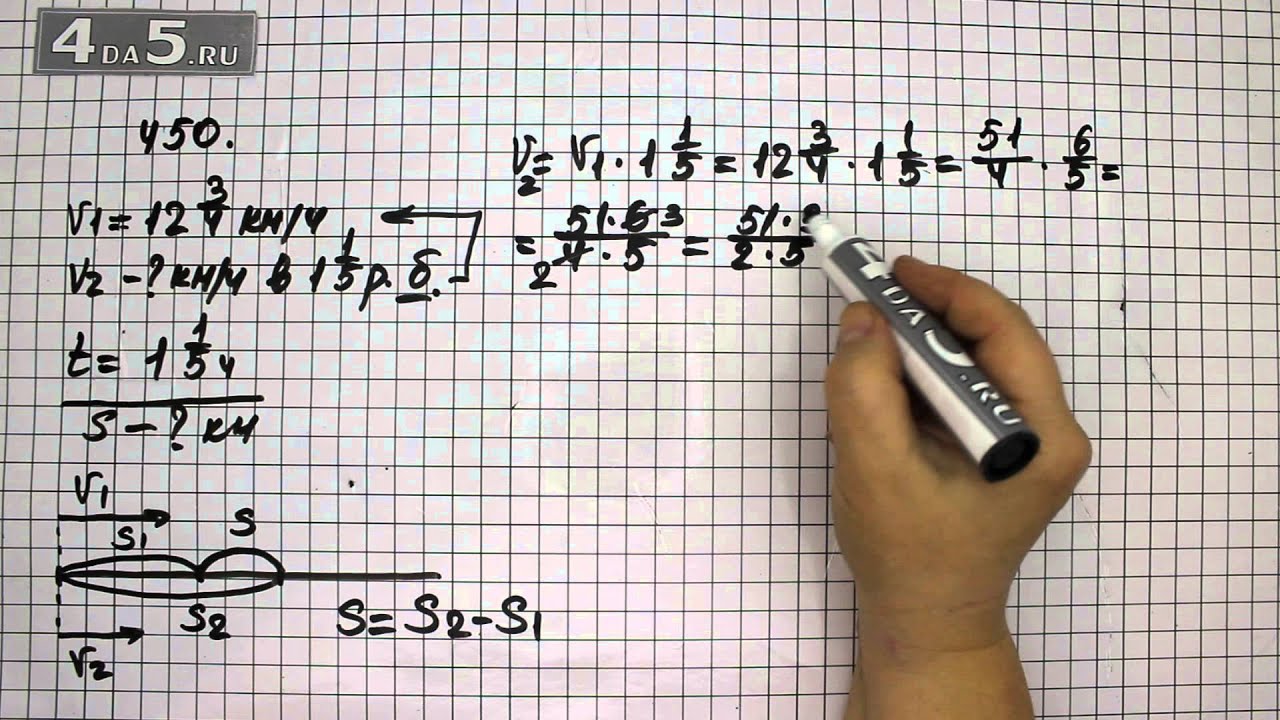 4DA5.RU
450.
V1 = 12 3/4 км/ч
V2 - ? км/ч в 1 1/5 р. б.
t = 1 1/5 ч
S - ? км
V1
S1 S
S2
V2
S = S2 - S1
V2 = V1 · 1 1/5 = 12 3/4 · 1 1/5 = 51/4 · 6/5 =
= 51 · 6 3 / 2 4 · 5 = 51 · / 2 · 5
4DA5.RU